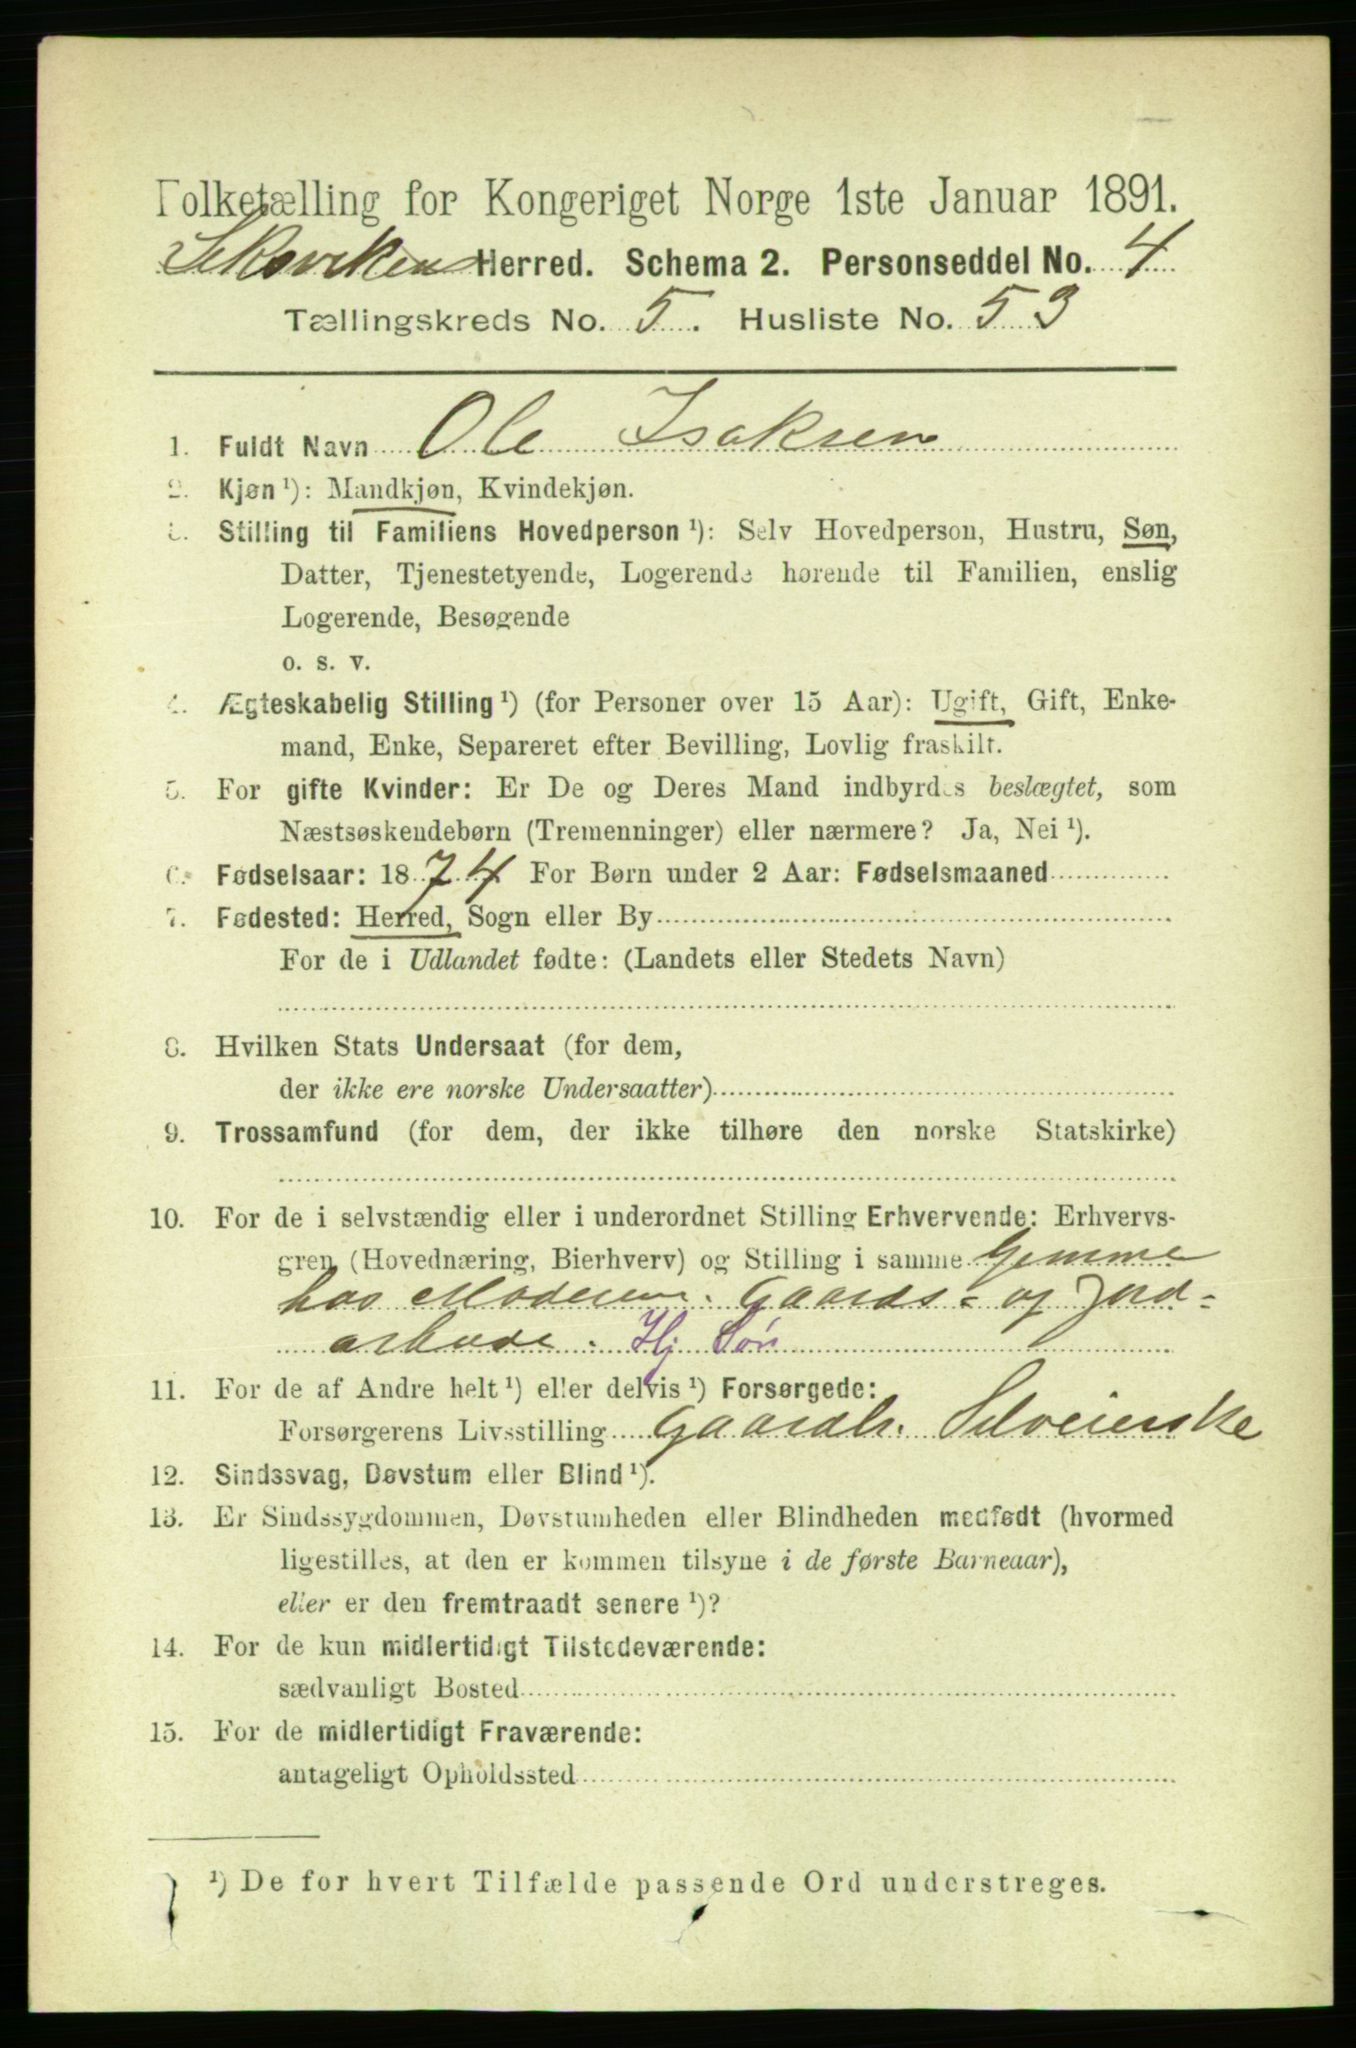 Folketælling for Kongeriget Norge 1ste Januar 1891.
Herred. Schema 2. Personseddel No. 4
Tællingskreds No. 5. Husliste No. 53
1. Fuldt Navn Ole Isaksen
2. Kjøn ¹): Mandkjøn, Kvindekjøn.
3. Stilling til Familiens Hovedperson ¹): Selv Hovedperson, Hustru, Søn,
Datter, Tjenestetyende, Logerende hørende til Familien, enslig
Logerende, Besøgende
o. s. v.
4. Ægteskabelig Stilling ¹) (for Personer over 15 Aar): Ugift, Gift, Enke-
mand, Enke, Separeret efter Bevilling, Lovlig fraskilt.
5. For gifte Kvinder: Er De og Deres Mand indbyrdes beslægtet, som
Næstsøskendebørn (Tremenninger) eller nærmere? Ja, Nei ¹).
6. Fødselsaar: 1874 For Børn under 2 Aar: Fødselsmaaned
7. Fødested: Herred, Sogn eller By
For de i Udlandet fødte: (Landets eller Stedets Navn)
8. Hvilken Stats Undersaat (for dem,
der ikke ere norske Undersaatter)
9. Trossamfund (for dem, der ikke tilhøre den norske Statskirke)
10. For de i selvstændig eller i underordnet Stilling Erhvervende: Erhvervs-
gren (Hovednæring, Bierhverv) og Stilling i samme hjemme
hos Moderen. Gaards- og Jord-
arbeide. Hj Søn
11. For de af Andre helt ¹) eller delvis ¹) Forsørgede:
Forsørgerens Livsstilling Gaardb. Selveierske
12. Sindssvag, Døvstum eller Blind ¹).
13. Er Sindssygdommen, Døvstumheden eller Blindheden medfødt (hvormed
ligestilles, at den er kommen tilsyne i de første Barneaar),
eller er den fremtraadt senere ¹)?
14. For de kun midlertidigt Tilstedeværende:
sædvanligt Bosted
15. For de midlertidigt Fraværende:
antageligt Opholdssted
¹) De for hvert Tilfælde passende Ord understreges.